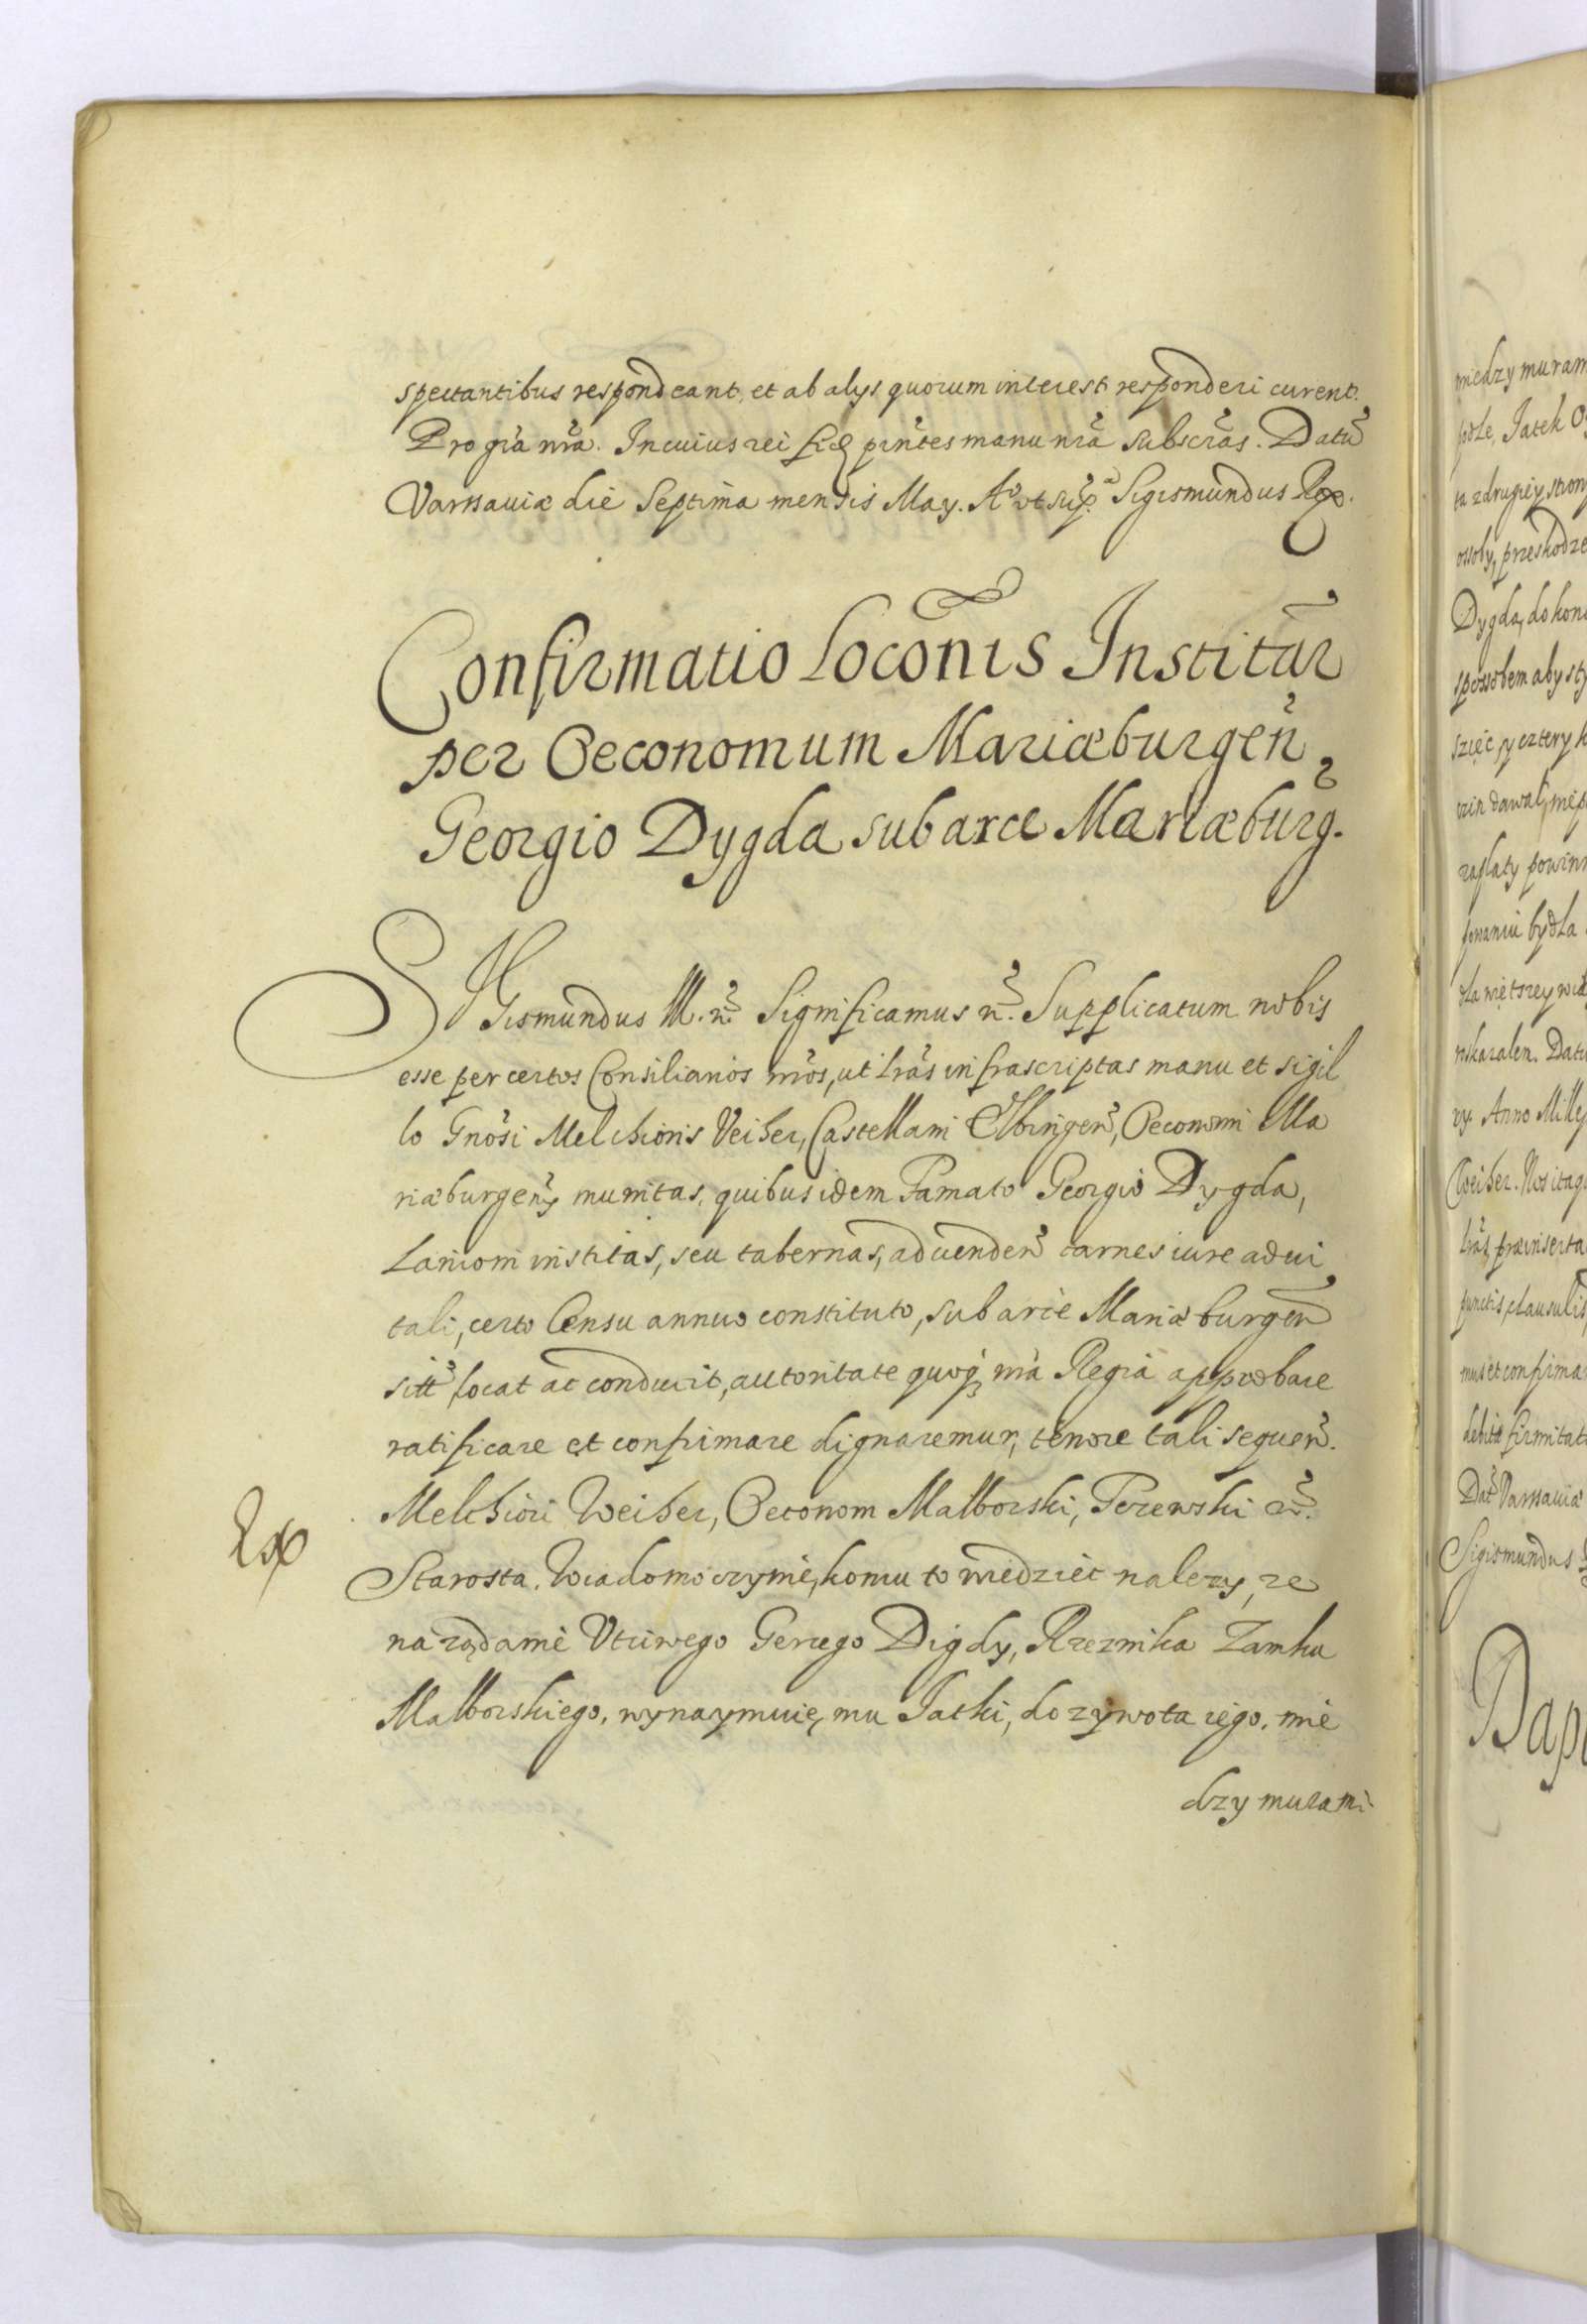 spectantibus respondeant, et ab alys quorum interest responderi curent.
Pro gra nra. In cuius rei fid pntes manu nra subscras. Datu
Varssaviæ die Septima mensis May. A° ut sup. Sigismundus Rex.
Confirmatio Loconis Institar
per Oeconomum Mariæburgen
Georgio Dygda sub arce Mariæburg.
SIGismundus III. n. Significamus n. Supplicatum nobis
esse per certos Consiliarios nros, ut lras infrascriptas manu et sigil
lo Gnosi Melchioris Veiher, Castellani Elbingen, Oeconomi Ma
riæburgen, munitas, quibus idem Famato Georgio Dygda,
Lanioni institas, seu tabernas, ad venden carnes iure advi
tali, certo Censu annuo constituto, sub arce Mariæburgen
sitt locat ac conducit, autoritate quoq nra Regia approbare
ratificare et confirmare dignaremur, tenore tali sequen.
Melchior Weiher, Oeconom Malborski,
Starosta. Wiadomo czynię, komu to wiedzieć nalezy, ze
na ządanie Utciwego Gerzego Digdy, Rzeznika Zamku
Malborskiego, wynaymuię mu Jatki, do zywota iego, mie
dzy murami
Ex
miedzy muram
podle, Jatek
ta z drugiey stron
ossoby, przeskodze
Dygda, do kon
spossobem aby
sześć, y cztery
dawal,
zaplaty powin
bydla
dla większey
roskazalem. Dat
Anno Mille
Weiher. Nos itaq
lras præinserta
punctis, clausulis
mus et confirma
debitæ firmitat
Dat Varssaviæ
Sigismundus
Dap